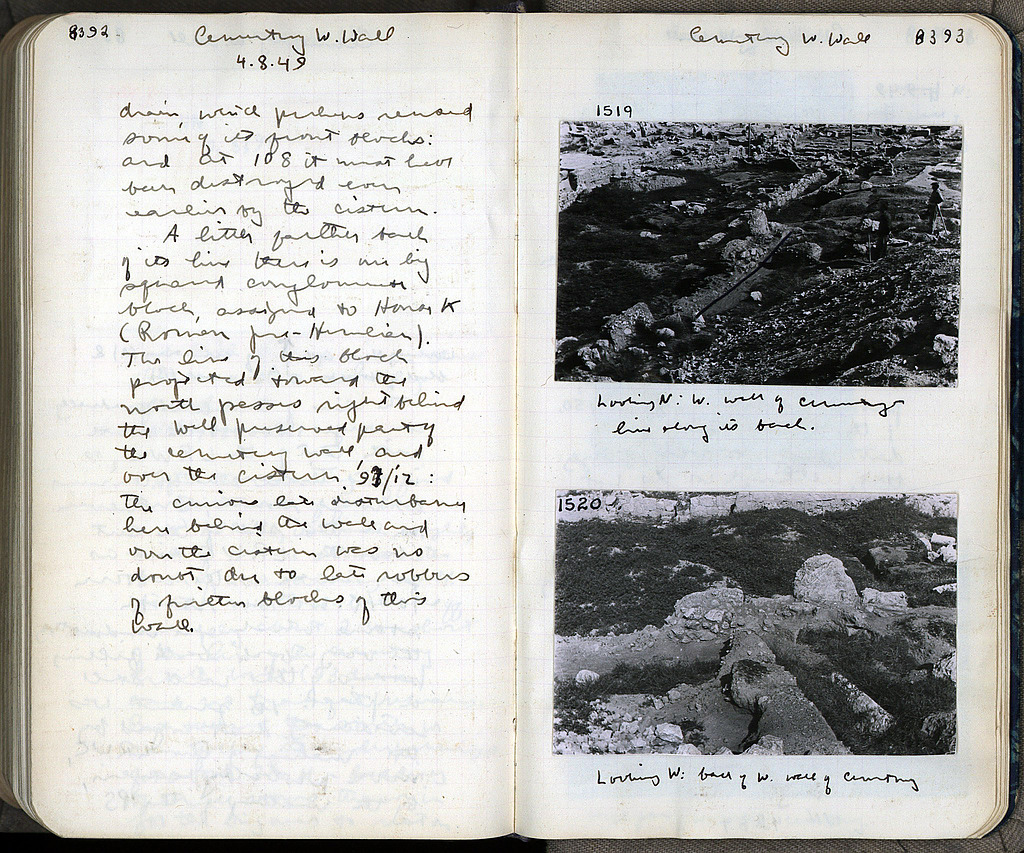 8392
Cemetery W. Wall
4.8.49
drain, which perhaps reused
some of its front blocks:
and at 108 it must have
been destroyed even
earlier by the cistern.
A little farther back
of its line there is one big
squared conglomerate
block, assigned to House K
(Roman pre-Herulian).
The line of this block
projected toward the
north passes right behind
the well preserved part of
the cemetery wall, and
over the cistern,
the curious late disturbance
here behind the wall and
over the cistern was no
doubt due to late robbers
of further blocks of this
wall.
Cemetery W. Wall
8393
1519
Looking N: W. wall of cemetery
line along is back.
1520
Looking W: back of W. wall of cemetery